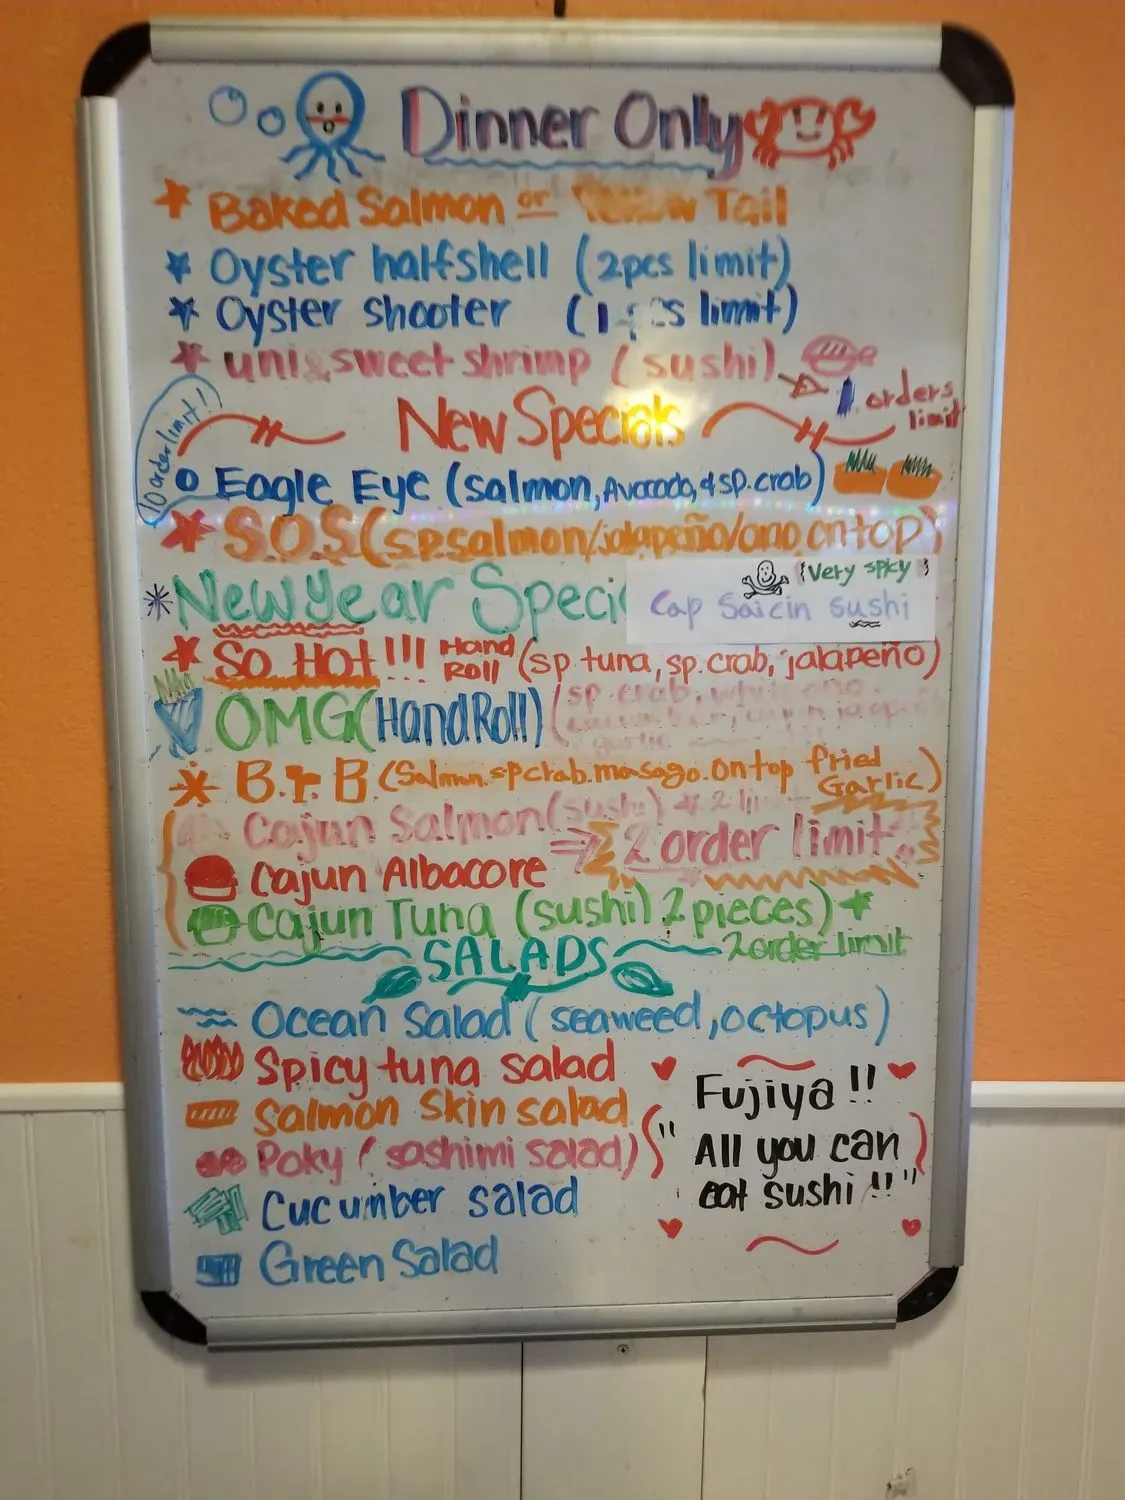 Dinner Only
Baked Salmon or Yellow Tail
Oyster halfshell (2pcs limit)
Oyster shooter (1 pcs limit)
uni & sweet shrimp (sushi)
1 orders
limit
New Specials
10 order limit!
Eagle Eye (salmon, Avocado, & sp.crab)
S.O.S (sp salmon/jalapeño/ono on top)
New Year Speci
{Very spicy}
Cap Saicin sushi
So Hot!!! Hand Roll (sp tuna, sp.crab, jalapeño)
OMG (Hand Roll) (sp crab, white ono
garlic
B.r.B (Salmon.spcrab.masago.ontop fried Garlic)
Cajun Salmon (sushi) * 2 li
2 order limit
Cajun Albacore
Cajun Tuna (sushi) 2 pieces)
2 order limit
SALADS
Ocean Salad (seaweed, octopus)
Spicy tuna salad
Salmon skin salad
Poky (sashimi salad)
Cucumber salad
Green Salad
Fujiya!!
"All you can
eat sushi!!"